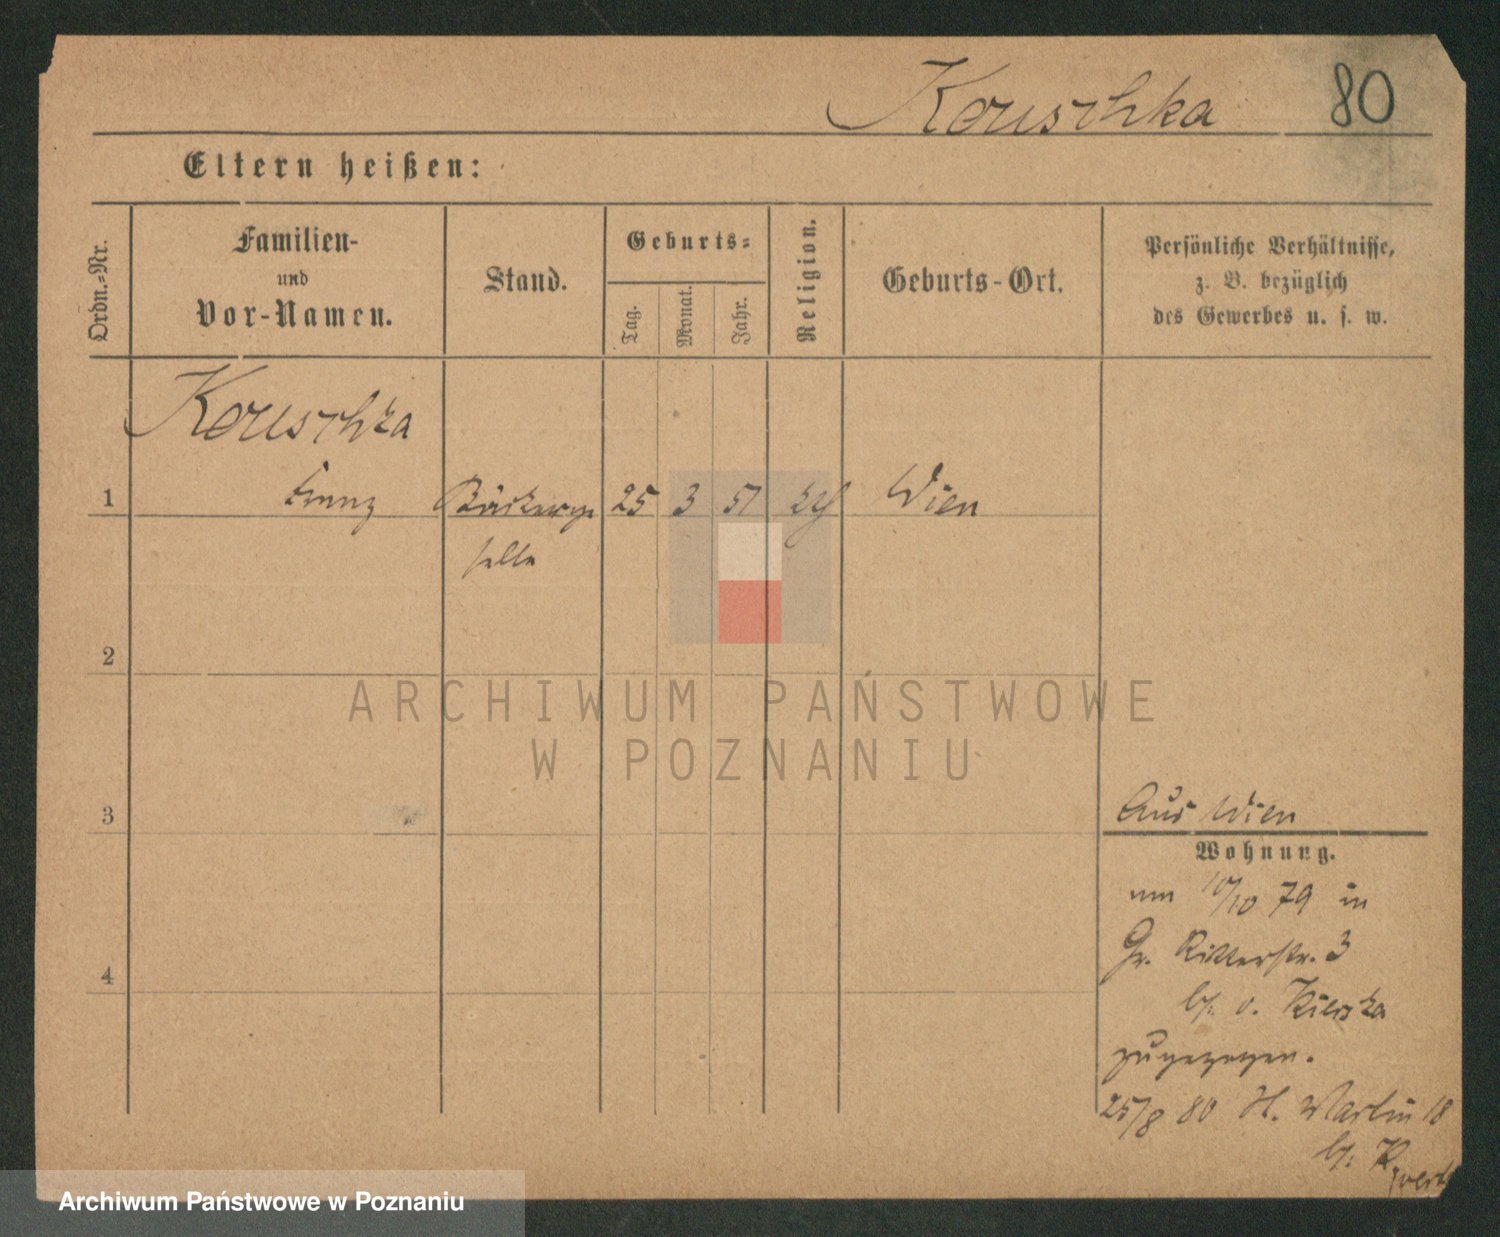 Kouschka 80
Eltern heißen:
Ordn.-Nr.
Familien-
und
Vor-Namen.
Stand.
Geburts-
Tag.
Monat.
Jahr.
Religion.
Geburts-Ort.
Persönliche Verhältnisse,
z. B. bezüglich
des Gewerbes u. s. w.
Kouschka
1 Franz Bäckerge 25 3 51 kth Wien
selle
2
ARCHIWUM PAŃSTWOWE
W POZNANIU
3
Aus Wien
Wohnung.
am 10/10 79 in
Gr. Ritterstr. 3
4
b. v.
zugezogen.
25/8 80 St. Martin 18
b.
Archiwum Państwowe w Poznaniu